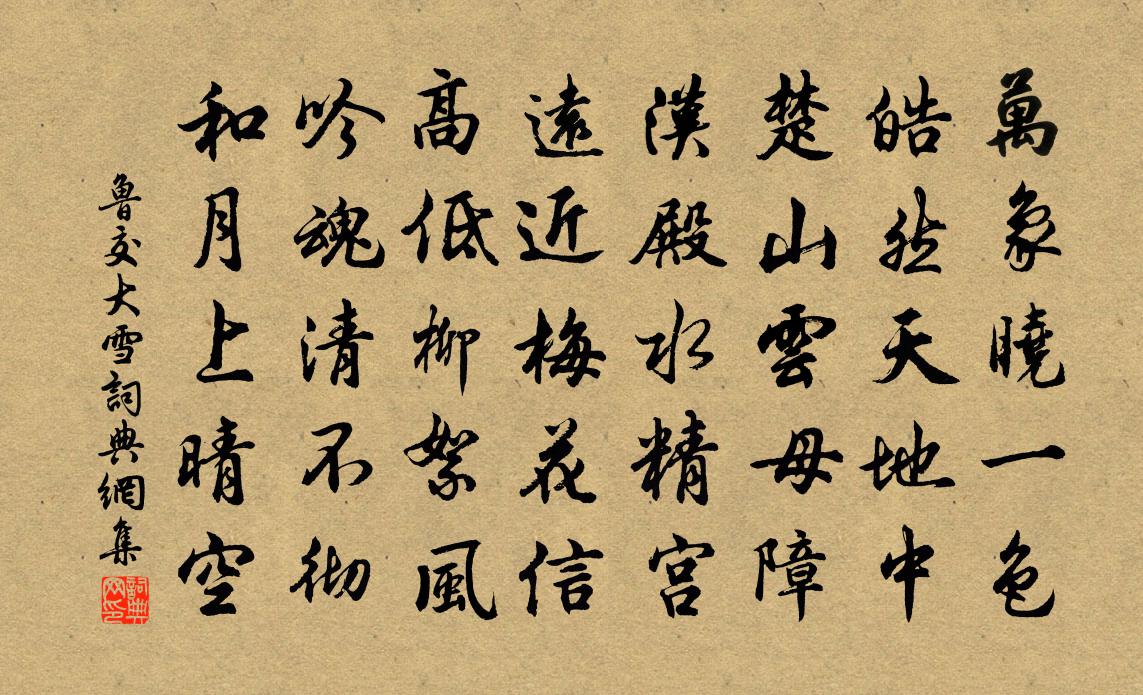 萬象曉一色
皓然天地中
楚山雲母障
漢殿水精宮
遠近梅花信
高低柳絮風
吟魂清不彻
和月上晴空
魯交大雪詞典網集
詞典网印